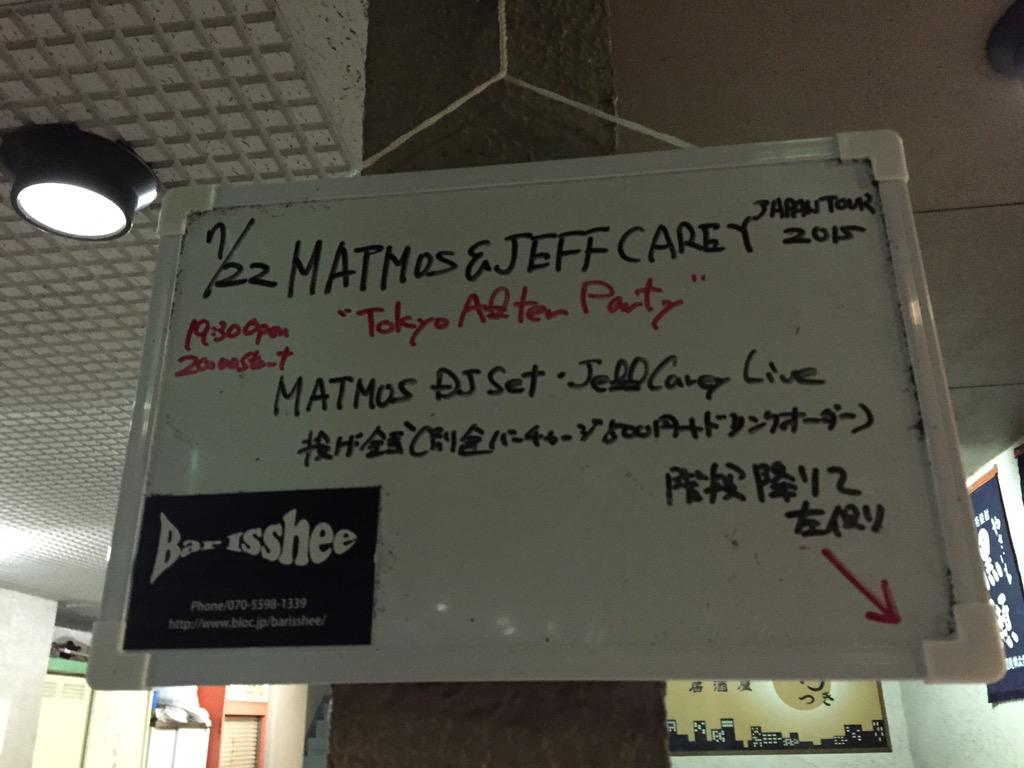 7/22 MATMOS & JEFF CAREY JAPAN TOUR 2015
"Tokyo After Party"
19:30 open
20:00 start
MATMOS DJ Set・Jeff Carey Live
投げ銭(別途バーチャージ500円+ドリンクオーダー)
階段降りて
左側り
Bar Isshee
Phone/070-5598-1339
http://www.bloc.jp/barisshee/
居酒屋
つき